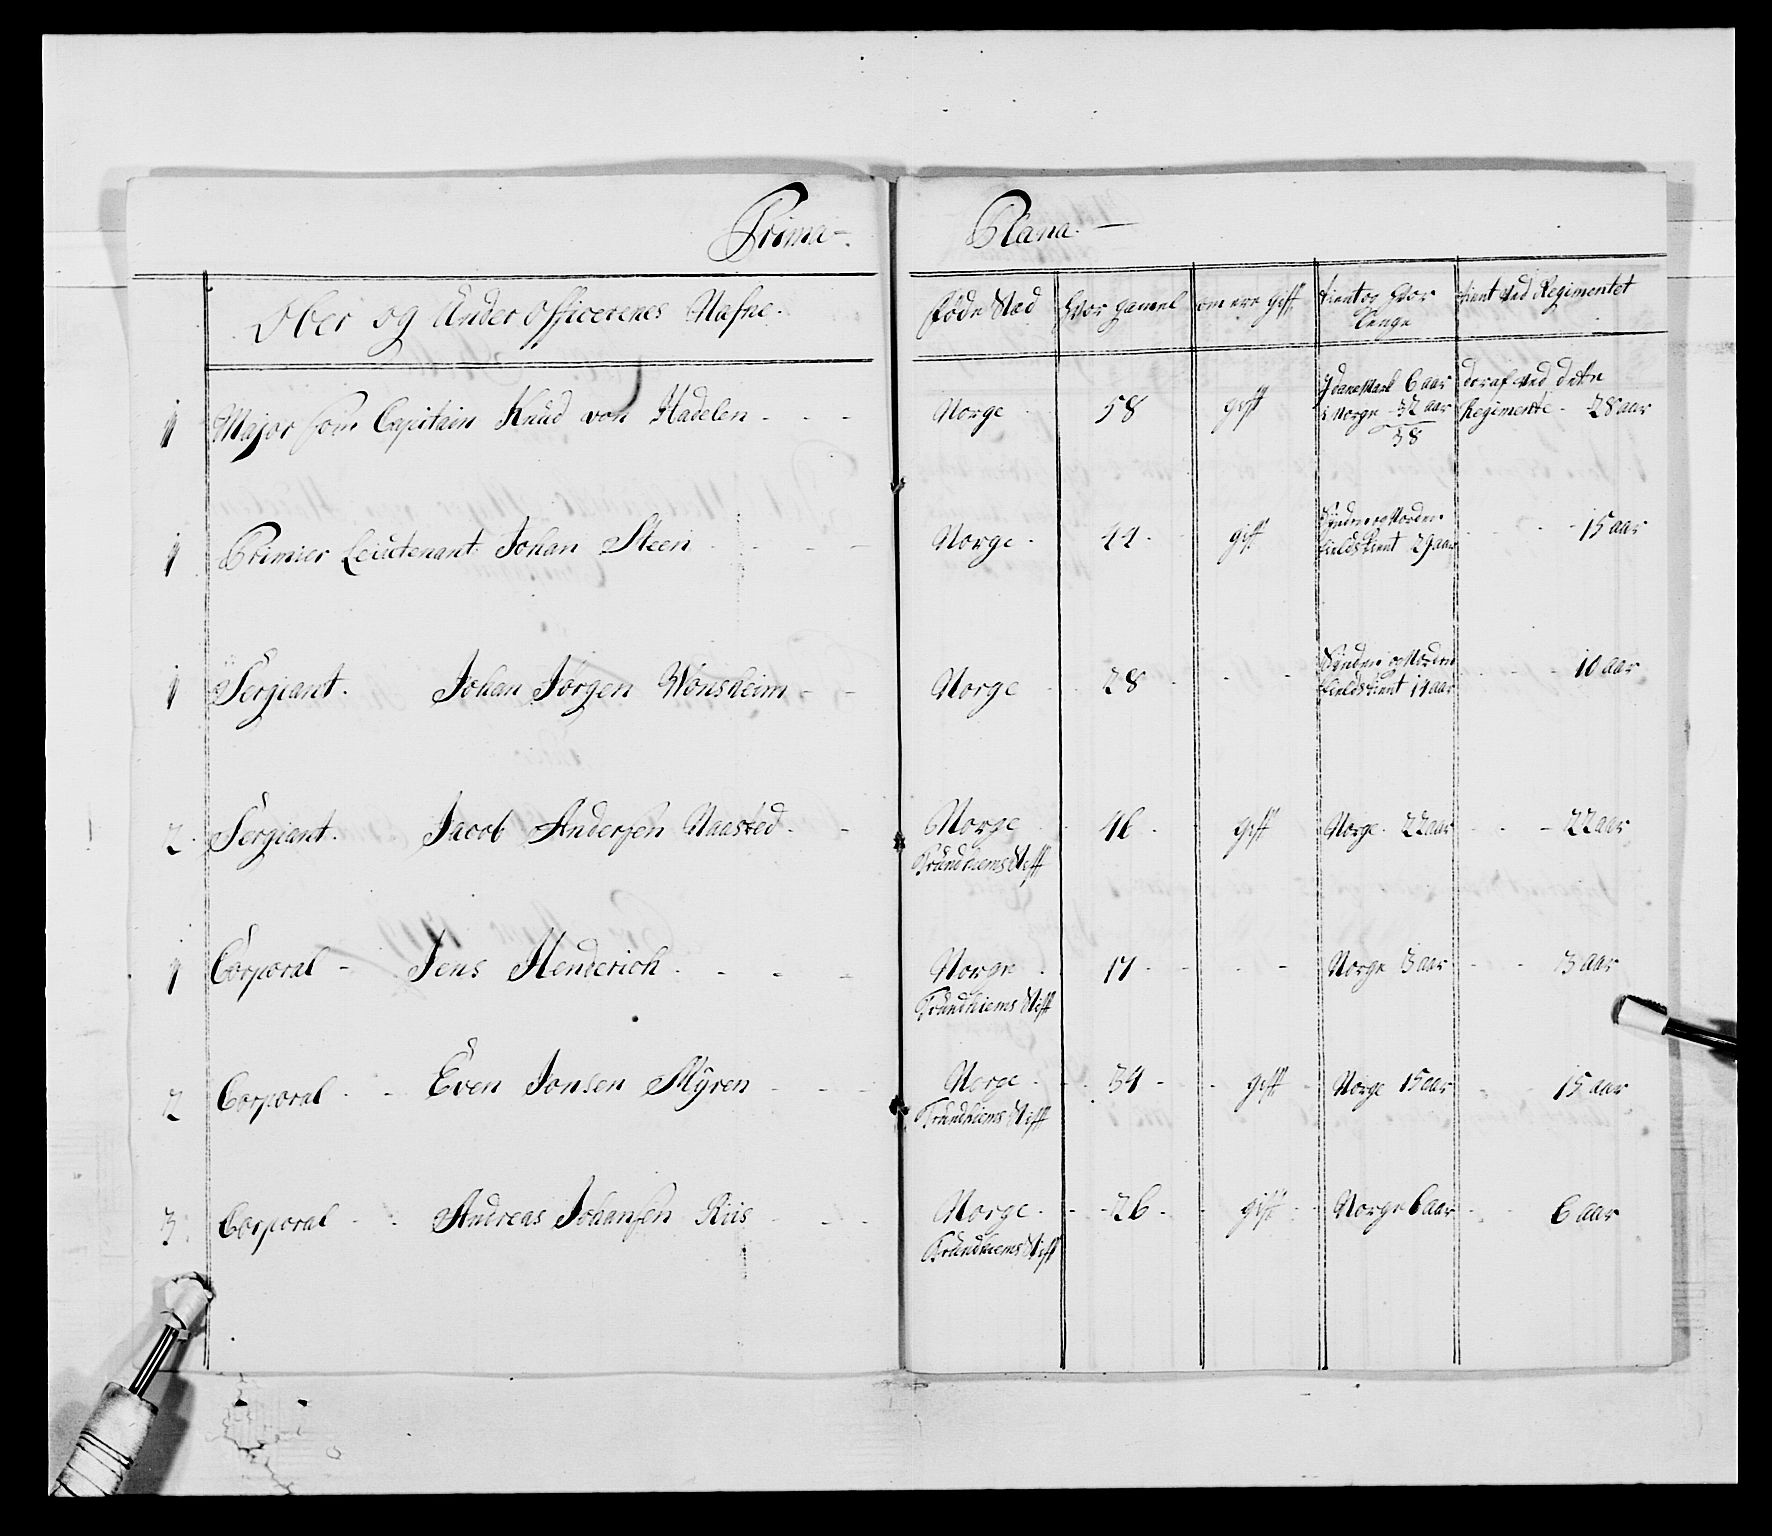 Prima- Plana.
Ober og Under Officerenes Nafne. Føde Stæd Hvor gamel om ere gift tient og hvor lenge tient ved Regimentet
1 Major som Capitain Knud von Hadelen Norge 58 gift I danemark 6 aar i Norge 32 aar 38 deraf ved dette Regimente 28 aar
1 Primier Leiutenant Johan Steen Norge 44 gift Synden og Norden fields tient 29 aar 15 aar
1 Sergiant. Johan Jørgen Wonsheim Norge 28 Synden og Norden fields tient 14 aar 10 aar
2 Sergiant. Jacob Andersen Naasted Norge Trundhiems Stift 46 gift Norge 22 aar 22 aar
1 Corporal Jens Henderich Norge Trundhiems Stift 17 Norge 3 aar 3 aar
2 Corporal Even Jonsen Myren Norge Trundhiems Stift 34 gift Norge 15 aar 15 aar
3 Corporal Andreas Johansen Riis Norge Trundhiems Stift 26 gift Norge 6 aar 6 aar